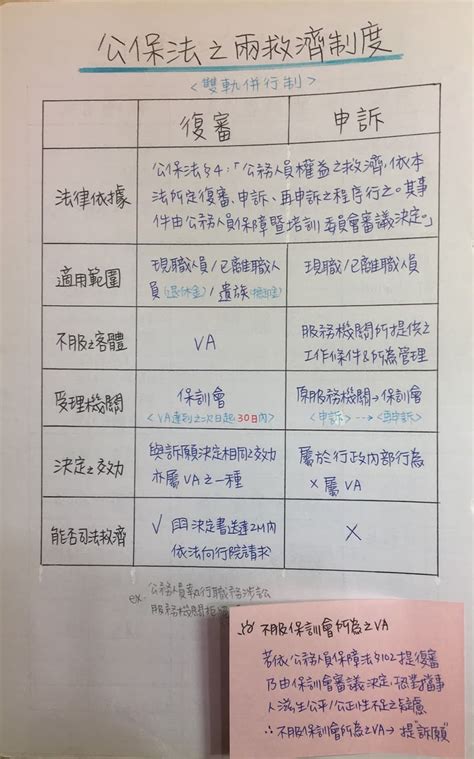 公保法之兩救濟制度
<雙軌併行制>
復審
申訴
法律依據
公保法§4:「公務人員權益之救濟,依本
法所定復審、申訴、再申訴之程序行之。其事
件由公務人員保障暨培訓委員會審議決定。」
適用範圍
現職人員/已離職人
員(退休金)/遺族
現職/已離職人員
不服之客體
VA
服務機關所提供之
工作條件&所為管理
受理機關
保訓會
<VA達到之次日起30日內>
原服務機關→保訓會
<申訴>--→<再申訴>
決定之效力
與訴願決定相同之效力
亦屬VA之一種
屬於行政內部行為
×屬VA
能否司法救濟
√ 決定書送達2M內
依法向行院請求
×
ex: 公務人員執行職務涉訟
服務機關拒
不服保訓會所為之VA
若依公務人員保障法§102提復審
乃由保訓會審議決定,恐對當事
人滋生公平/公正性不足之疑慮
∴不服保訓會所為之VA→提"訴願"